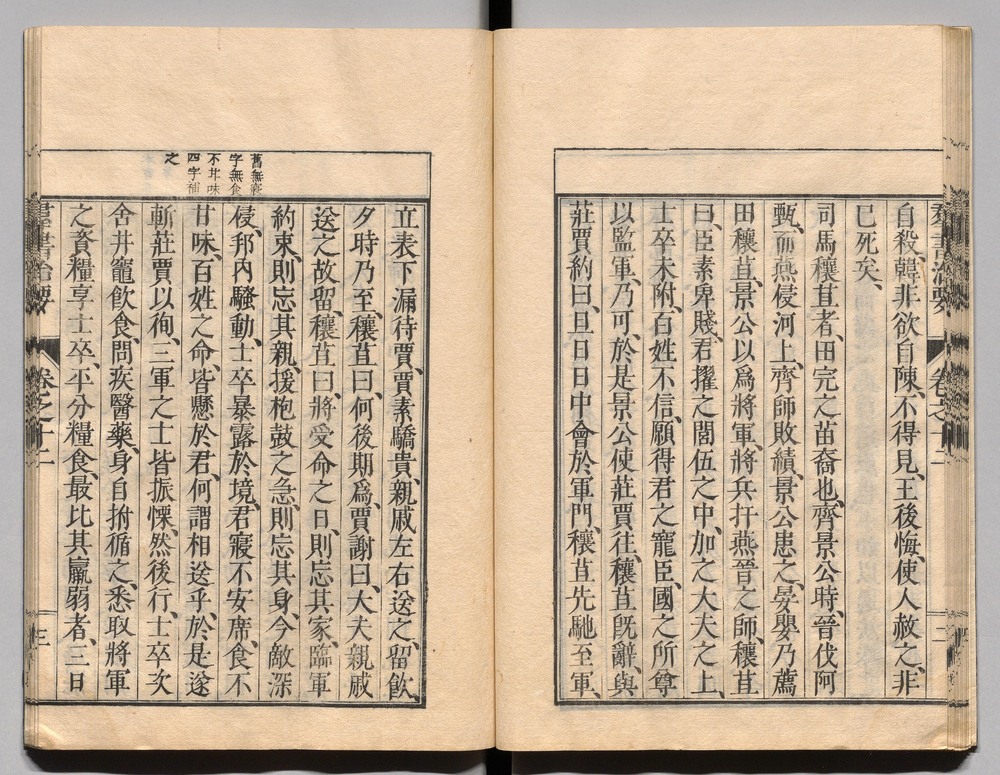 自殺、韓非欲自陳、不得見、王後悔、使人赦之、非
已死矣、
司馬穰苴者、田完之苗裔也、齊景公時、晉伐阿
甄、而燕侵河上、齊師敗績、景公患之、晏嬰乃薦
田穰苴、景公以爲將軍、將兵扞燕晉之師、穰苴
曰、臣素卑賤、君擢之閭伍之中、加之大夫之上、
士卒未附、百姓不信、願得君之寵臣、國之所尊
以監軍、乃可、於是景公使莊賈往、穰苴既辭、與
莊賈約曰、旦日日中會於軍門、穰苴先馳至軍、
舊無寢
字無食
不甘味
四字補
之
立表下漏待賈、賈素驕貴、親戚左右送之、留飲、
夕時乃至、穰苴曰、何後期爲、賈謝曰、大夫親戚
送之故留、穰苴曰、將受命之日、則忘其家、臨軍
約束、則忘其親、援枹鼓之急、則忘其身、今敵深
侵、邦內騷動、士卒暴露於境、君寢不安席、食不
甘味、百姓之命、皆懸於君、何謂相送乎、於是遂
斬莊賈以徇、三軍之士皆振慄、然後行、士卒次
舍井竈飲食、問疾醫藥、身自拊循之、悉取將軍
之資糧享士卒、平分糧食、最比其羸弱者、三日
羣書治要
卷之十二
三